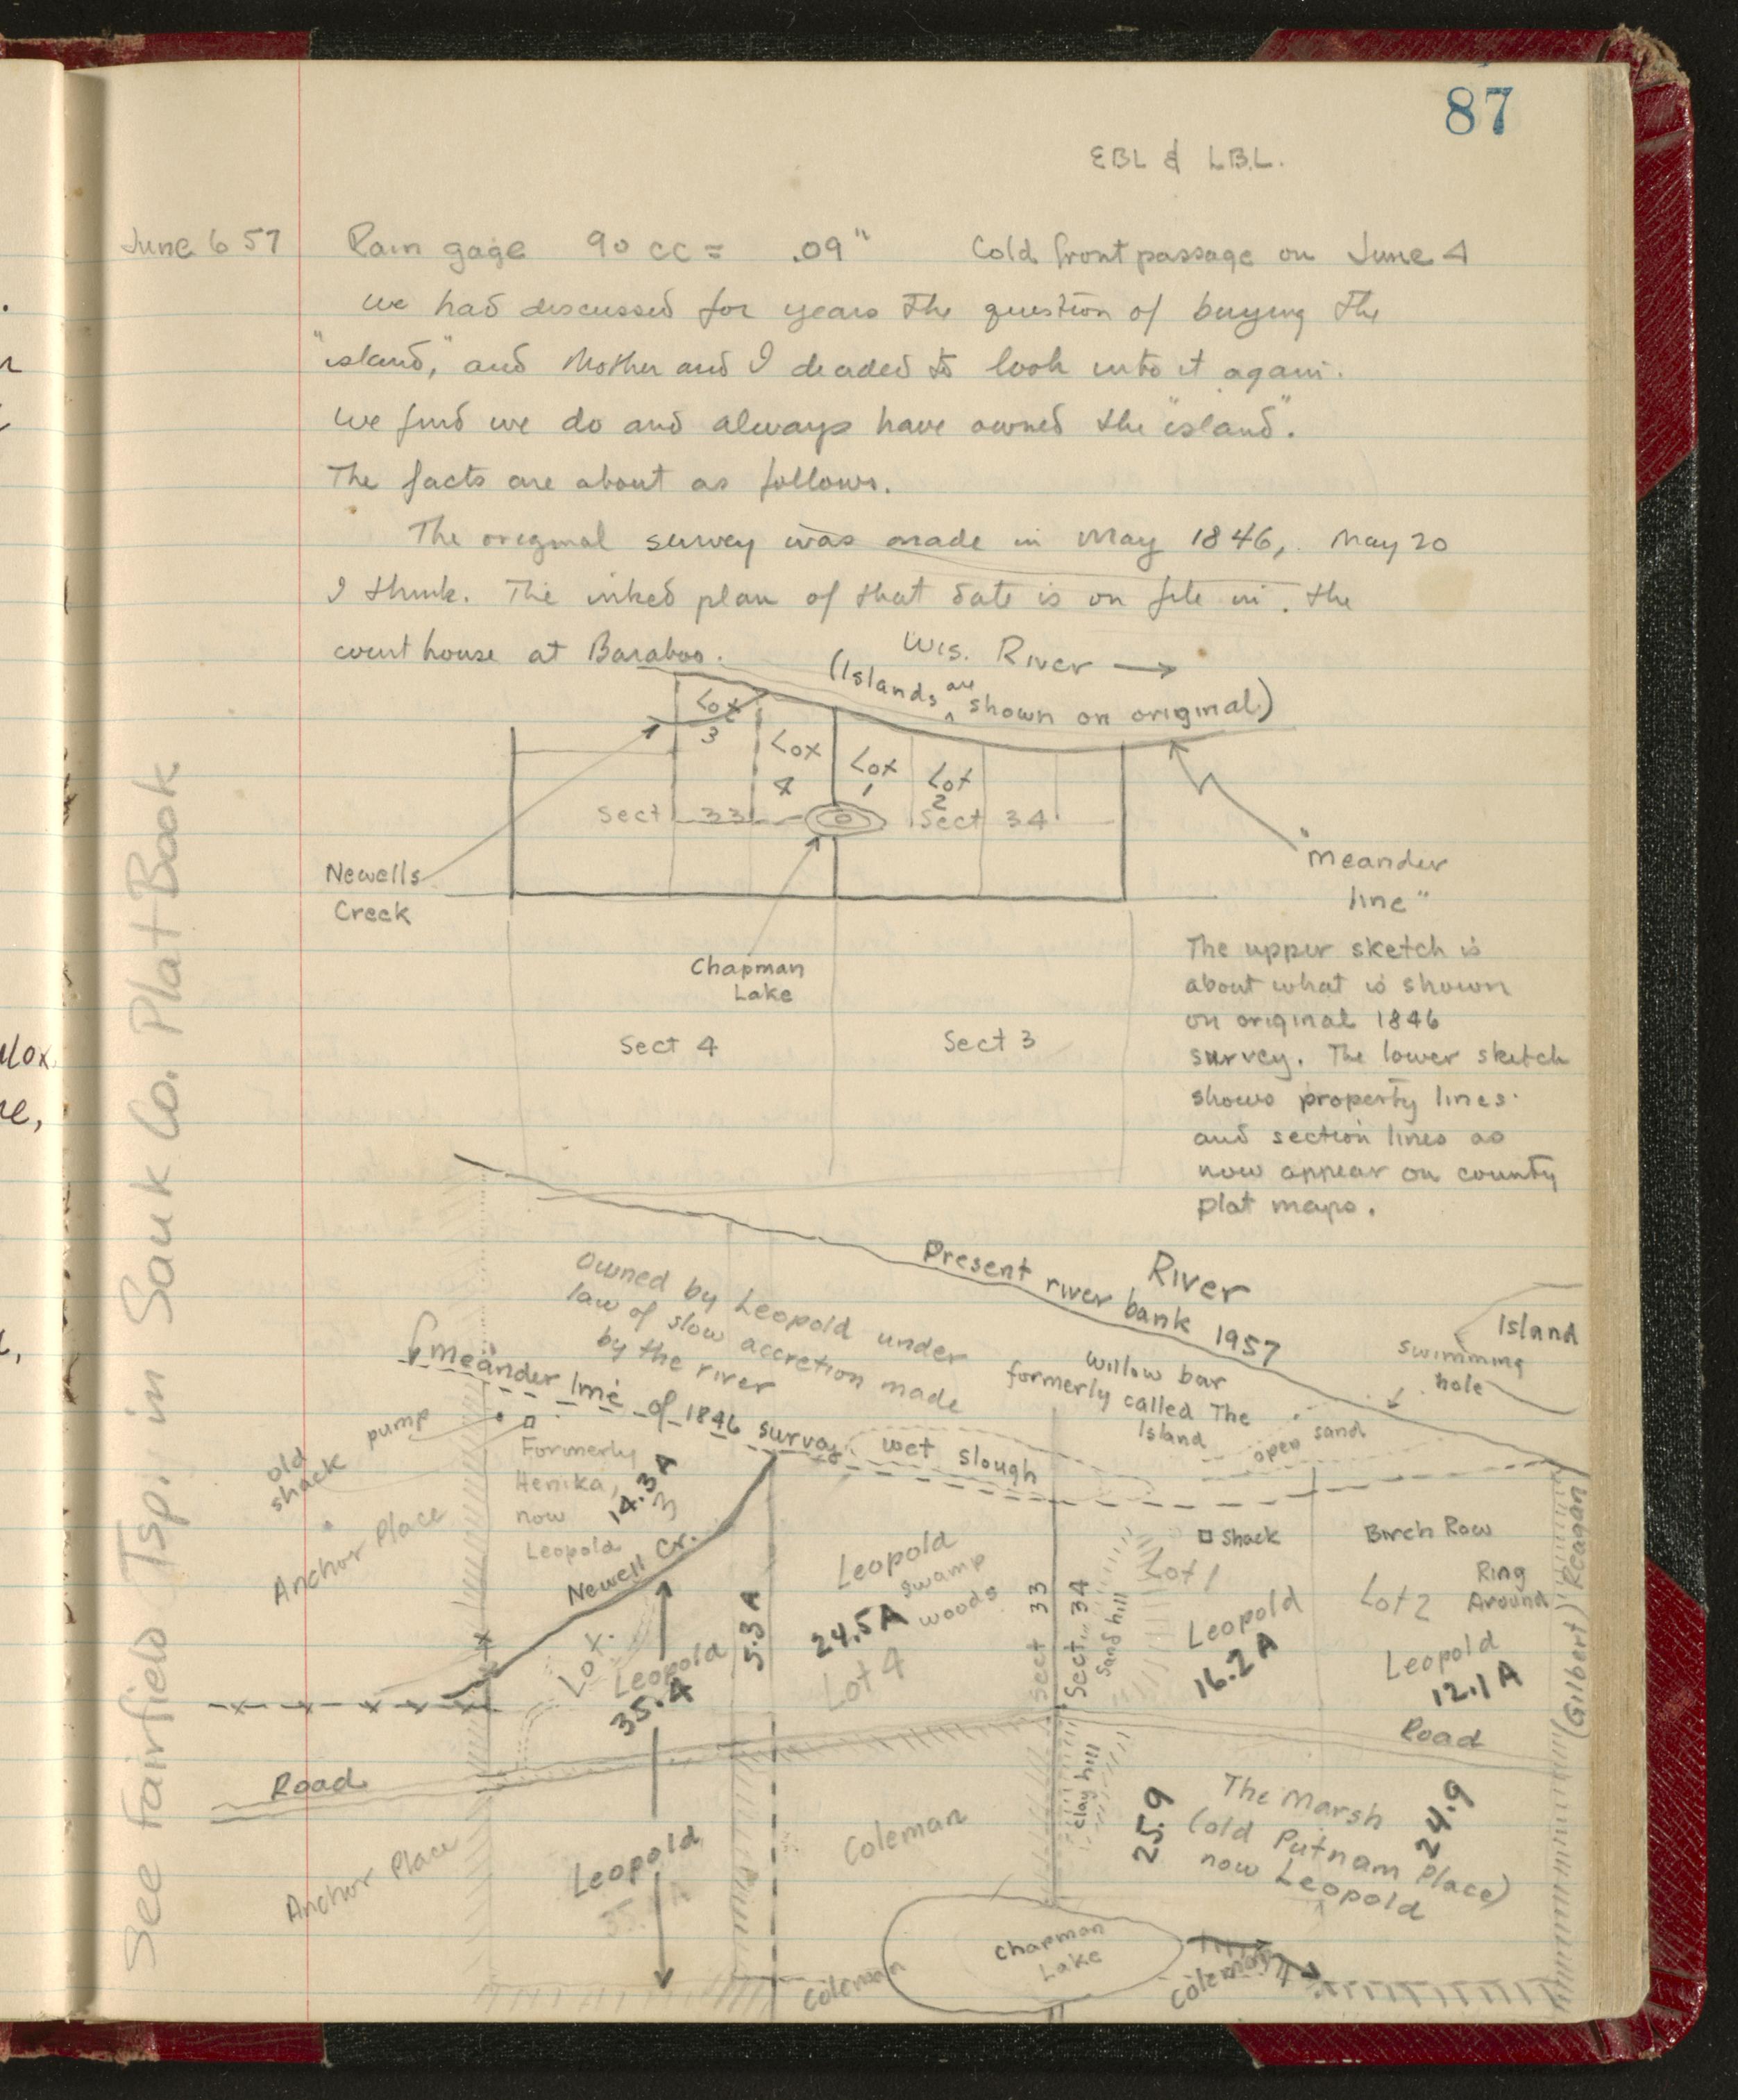 87
EBL & L.B.L.
June 6 57 Rain gage 90 cc = .09" Cold front passage on June 4
We had discussed for years the question of buying the
"island," and Mother and I decided to look into it again.
We find we do and always have owned the "island".
The facts are about as follows.
The original survey was made in May 1846, May 20
I think. The inked plan of that date is on file in the
court house at Baraboo.
Wis. River
(Islands are shown on original.)
Lot
3
Lot
4
Lot
1
Lot
2
Sect 33
Sect 34
Newells
Creek
"meander
line"
Chapman
Lake
Sect 4
Sect 3
The upper sketch is
about what is shown
on original 1846
survey. The lower sketch
shows property lines
and section lines as
now appear on county
plat maps.
See Fairfield Tsp. in Sauk Co. Plat Book
River
Present river bank 1957
Island
swimming
hole
Owned by Leopold under
law of slow accretion made
by the river
willow bar
formerly called The
Island
open sand
meander line of 1846 survey
wet slough
pump
old
shack
Formerly
Henika,
now
Leopold
14.3 A
3
Newell Cr.
Anchor Place
Lot
Leopold
35.4
5.3 A
Leopold
swamp
woods
24.5 A
Lot 4
Sect 33
Sect. 34
Sand hill
Shack
Lot 1
Leopold
16.2 A
Birch Row
Ring
Around
Lot 2
Leopold
12.1 A
(Gilbert) Reagan
Road
Road
Anchor Place
Leopold
Coleman
clay hill
25.9
The Marsh
(old Putnam Place)
now Leopold
24.9
Chapman
Lake
Coleman
Coleman